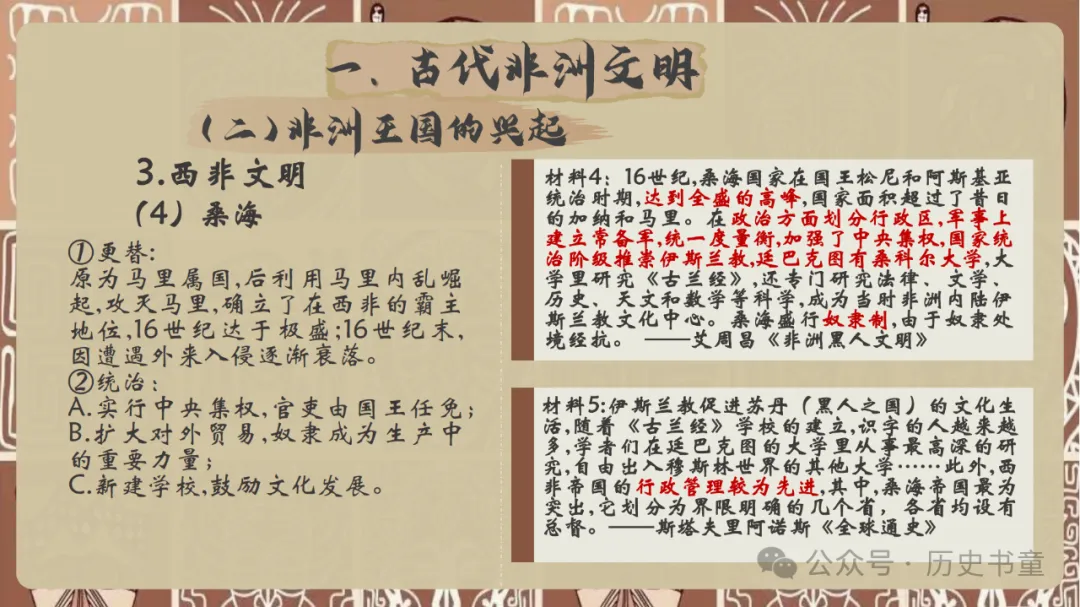 一、古代非洲文明
（二）非洲王国的兴起
3.西非文明
（4）桑海
①更替：
原为马里属国,后利用马里内乱崛
起,攻灭马里,确立了在西非的霸主
地位,16世纪达于极盛;16世纪末,
因遭遇外来入侵逐渐衰落。
②统治：
A.实行中央集权,官吏由国王任免;
B.扩大对外贸易,奴隶成为生产中
的重要力量;
C.新建学校,鼓励文化发展。
材料4：16世纪,桑海国家在国王松尼和阿斯基亚
统治时期,达到全盛的高峰,国家面积超过了昔日
的加纳和马里。在政治方面划分行政区,军事上
建立常备军,统一度量衡,加强了中央集权,国家统
治阶级推崇伊斯兰教,廷巴克图有桑科尔大学,大
学里研究《古兰经》,还专门研究法律、文学、
历史、天文和数学等科学,成为当时非洲内陆伊
斯兰教文化中心。桑海盛行奴隶制,由于奴隶处
境经抗。——艾周昌《非洲黑人文明》
材料5:伊斯兰教促进苏丹（黑人之国）的文化生
活,随着《古兰经》学校的建立,识字的人越来越
多,学者们在廷巴克图的大学里从事最高深的研
究,自由出入穆斯林世界的其他大学……此外,西
非帝国的行政管理较为先进,其中,桑海帝国最为
突出,它划分为界限明确的几个省，各省均设有
总督。——斯塔夫里阿诺斯《全球通史》
公众号·历史书童